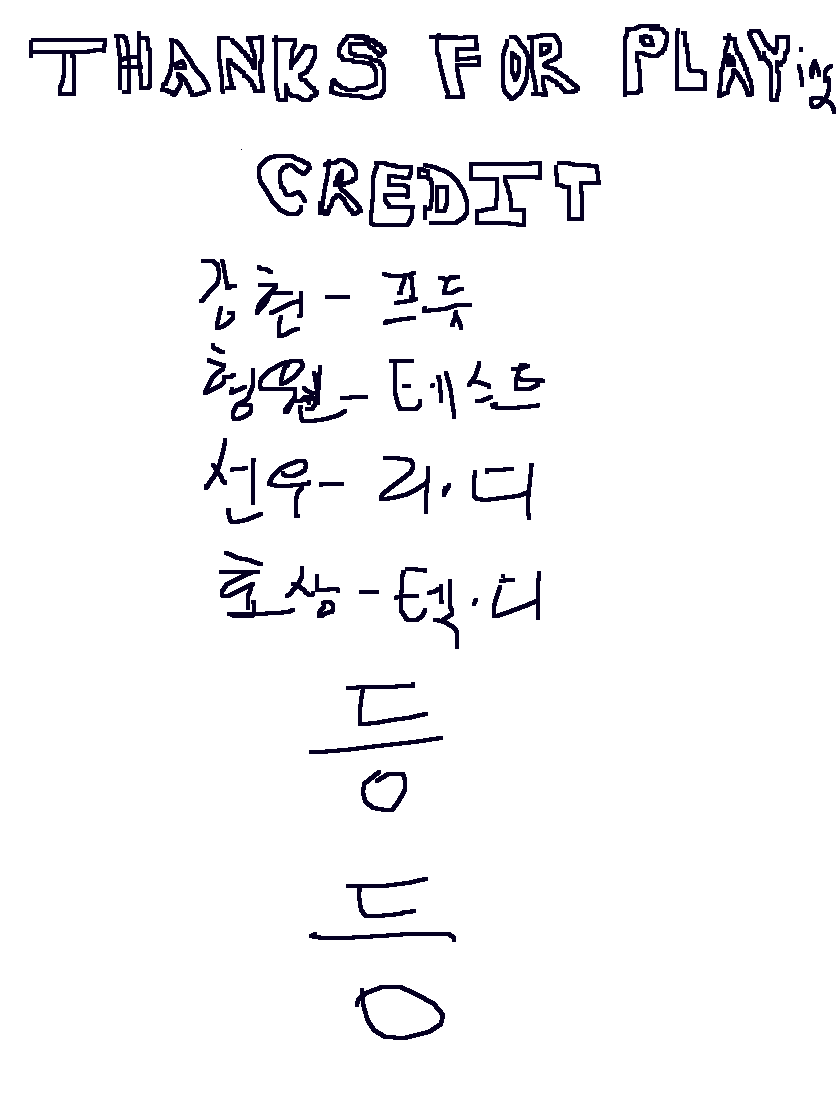 THANKS FOR PLAYing
CREDIT
강현 - 프듀
형원 - 테스트
선우 - 리·디
호상 - 텍·디
등
등